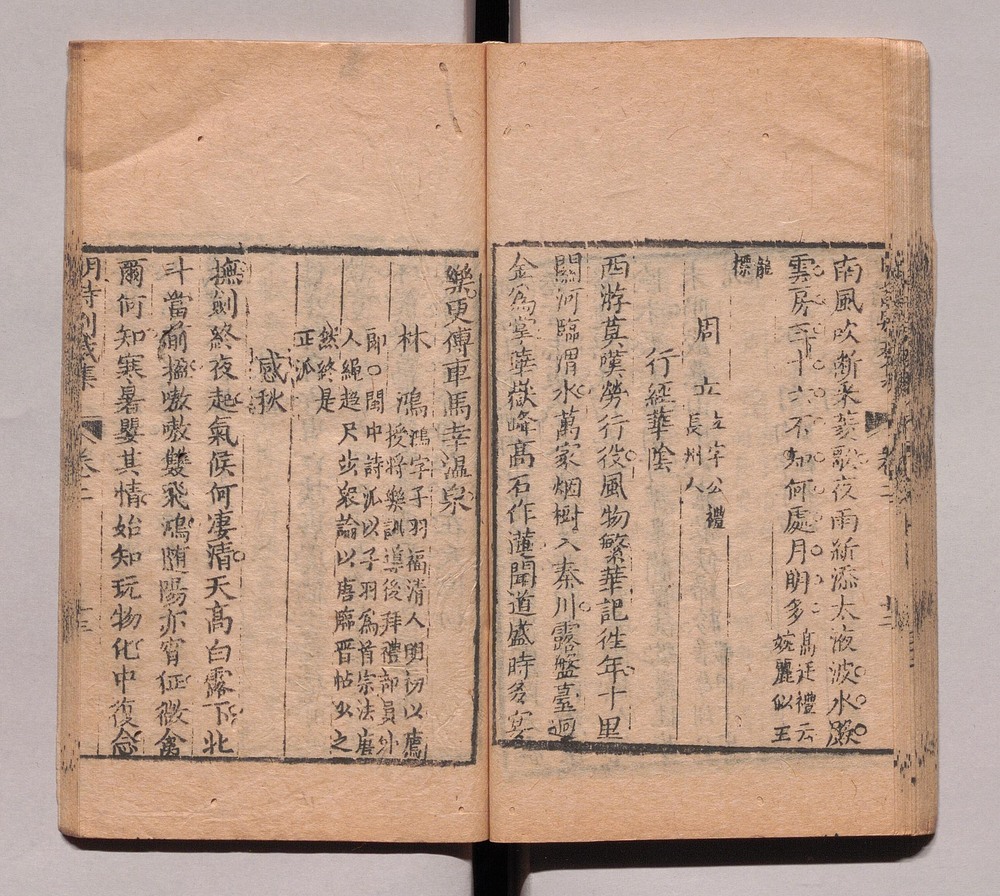 南風吹斷采菱歌夜雨新添太液波水殿
雲房三十六不知何處月明多
高廷禮云
婉麗似王
龍標
周 立
立字公禮
長州人
行經華陰
西游莫嘆勞行役風物繁華記徃年十里
關河臨渭水萬家烟樹入秦川露盤臺迥
金為掌華嶽峰髙石作蓮聞道盛時多宴
樂更傳車馬幸温泉
林 鴻
鴻字子羽福清人明初以薦
授將樂訓導後拜禮部員外
郎○閩中詩派以子羽為首宗法唐
人繩趋尺步衆論以唐臨晋帖少之
然終是
正派
感秋
撫劍終夜起氣候何凄清天髙白露下北
斗當前楹嗷嗷雙飛鴻随陽亦宵征微禽
爾何知寒暑嬰其情始知玩物化中復念
明詩别裁集
卷二